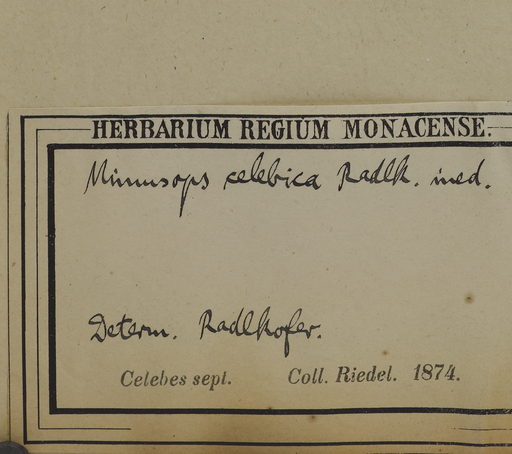 HERBARIUM REGIUM MONACENSE.
Mimusops celebica Radlk. ined.
Determ. Radlkofer.
Celebes sept. Coll. Riedel. 1874.